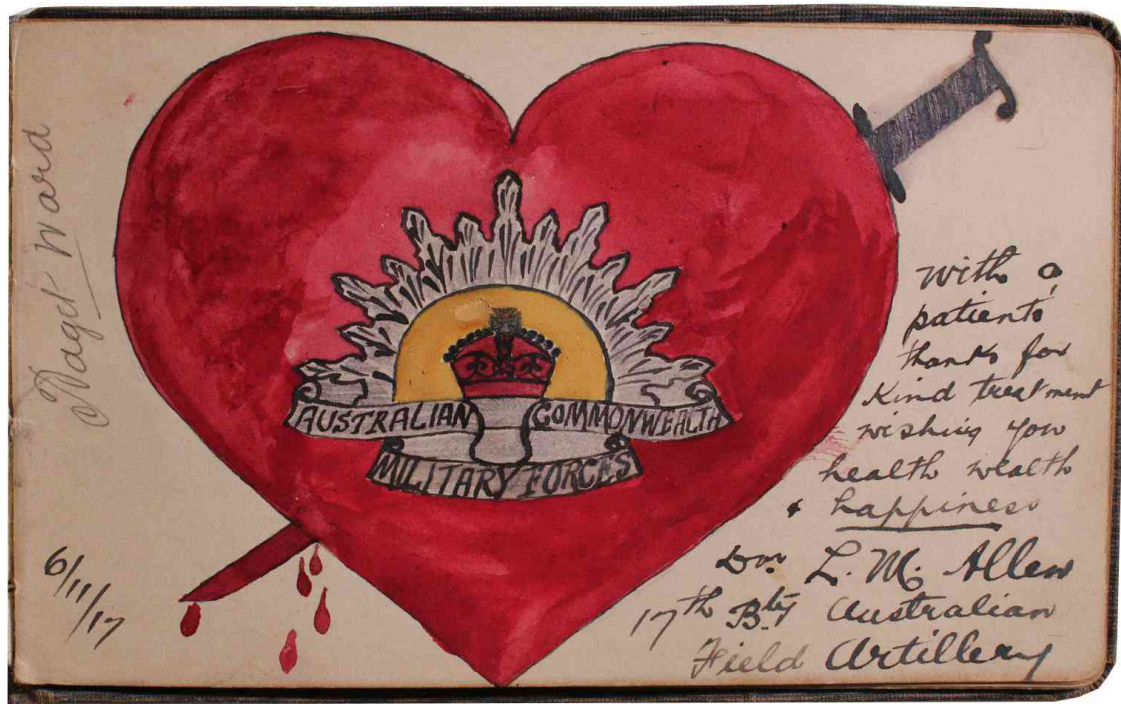 Paget Ward
AUSTRALIAN COMMONWEALTH
MILITARY FORCES
With a
patients'
thanks for
Kind treatment
wishing you
health wealth
& happiness
Dvr L. M. Allen
17th Bty Australian
Field Artillery
6/11/17